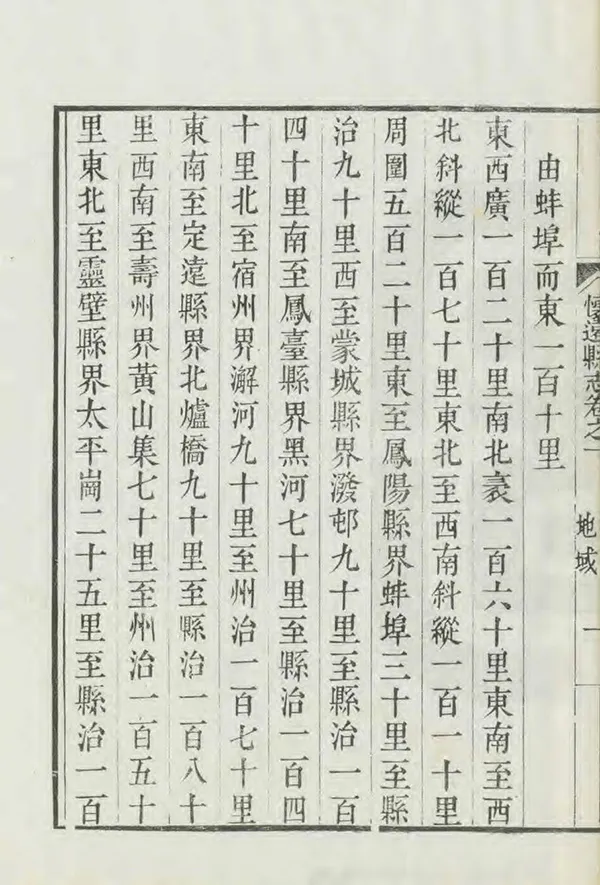 懷遠縣志卷之一
地域
一
由蚌埠而東一百十里
東西廣一百二十里南北袤一百六十里東南至西
北斜縱一百七十里東北至西南斜縱一百一十里
周圍五百二十里東至鳳陽縣界蚌埠三十里至縣
治九十里西至蒙城縣界潑邨九十里至縣治一百
四十里南至鳳臺縣界黑河七十里至縣治一百四
十里北至宿州界澥河九十里至州治一百七十里
東南至定遠縣界北爐橋九十里至縣治一百八十
里西南至壽州界黃山集七十里至州治一百五十
里東北至靈壁縣界太平崗二十五里至縣治一百